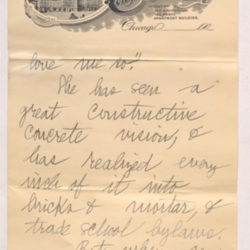 APARTMENT BUILDING.
Chicago 190
love me so".
She has seen a
great constructive
concrete vision, &
has realized every
inch of it into
bricks & mortar, &
trade school bylaws.
But when